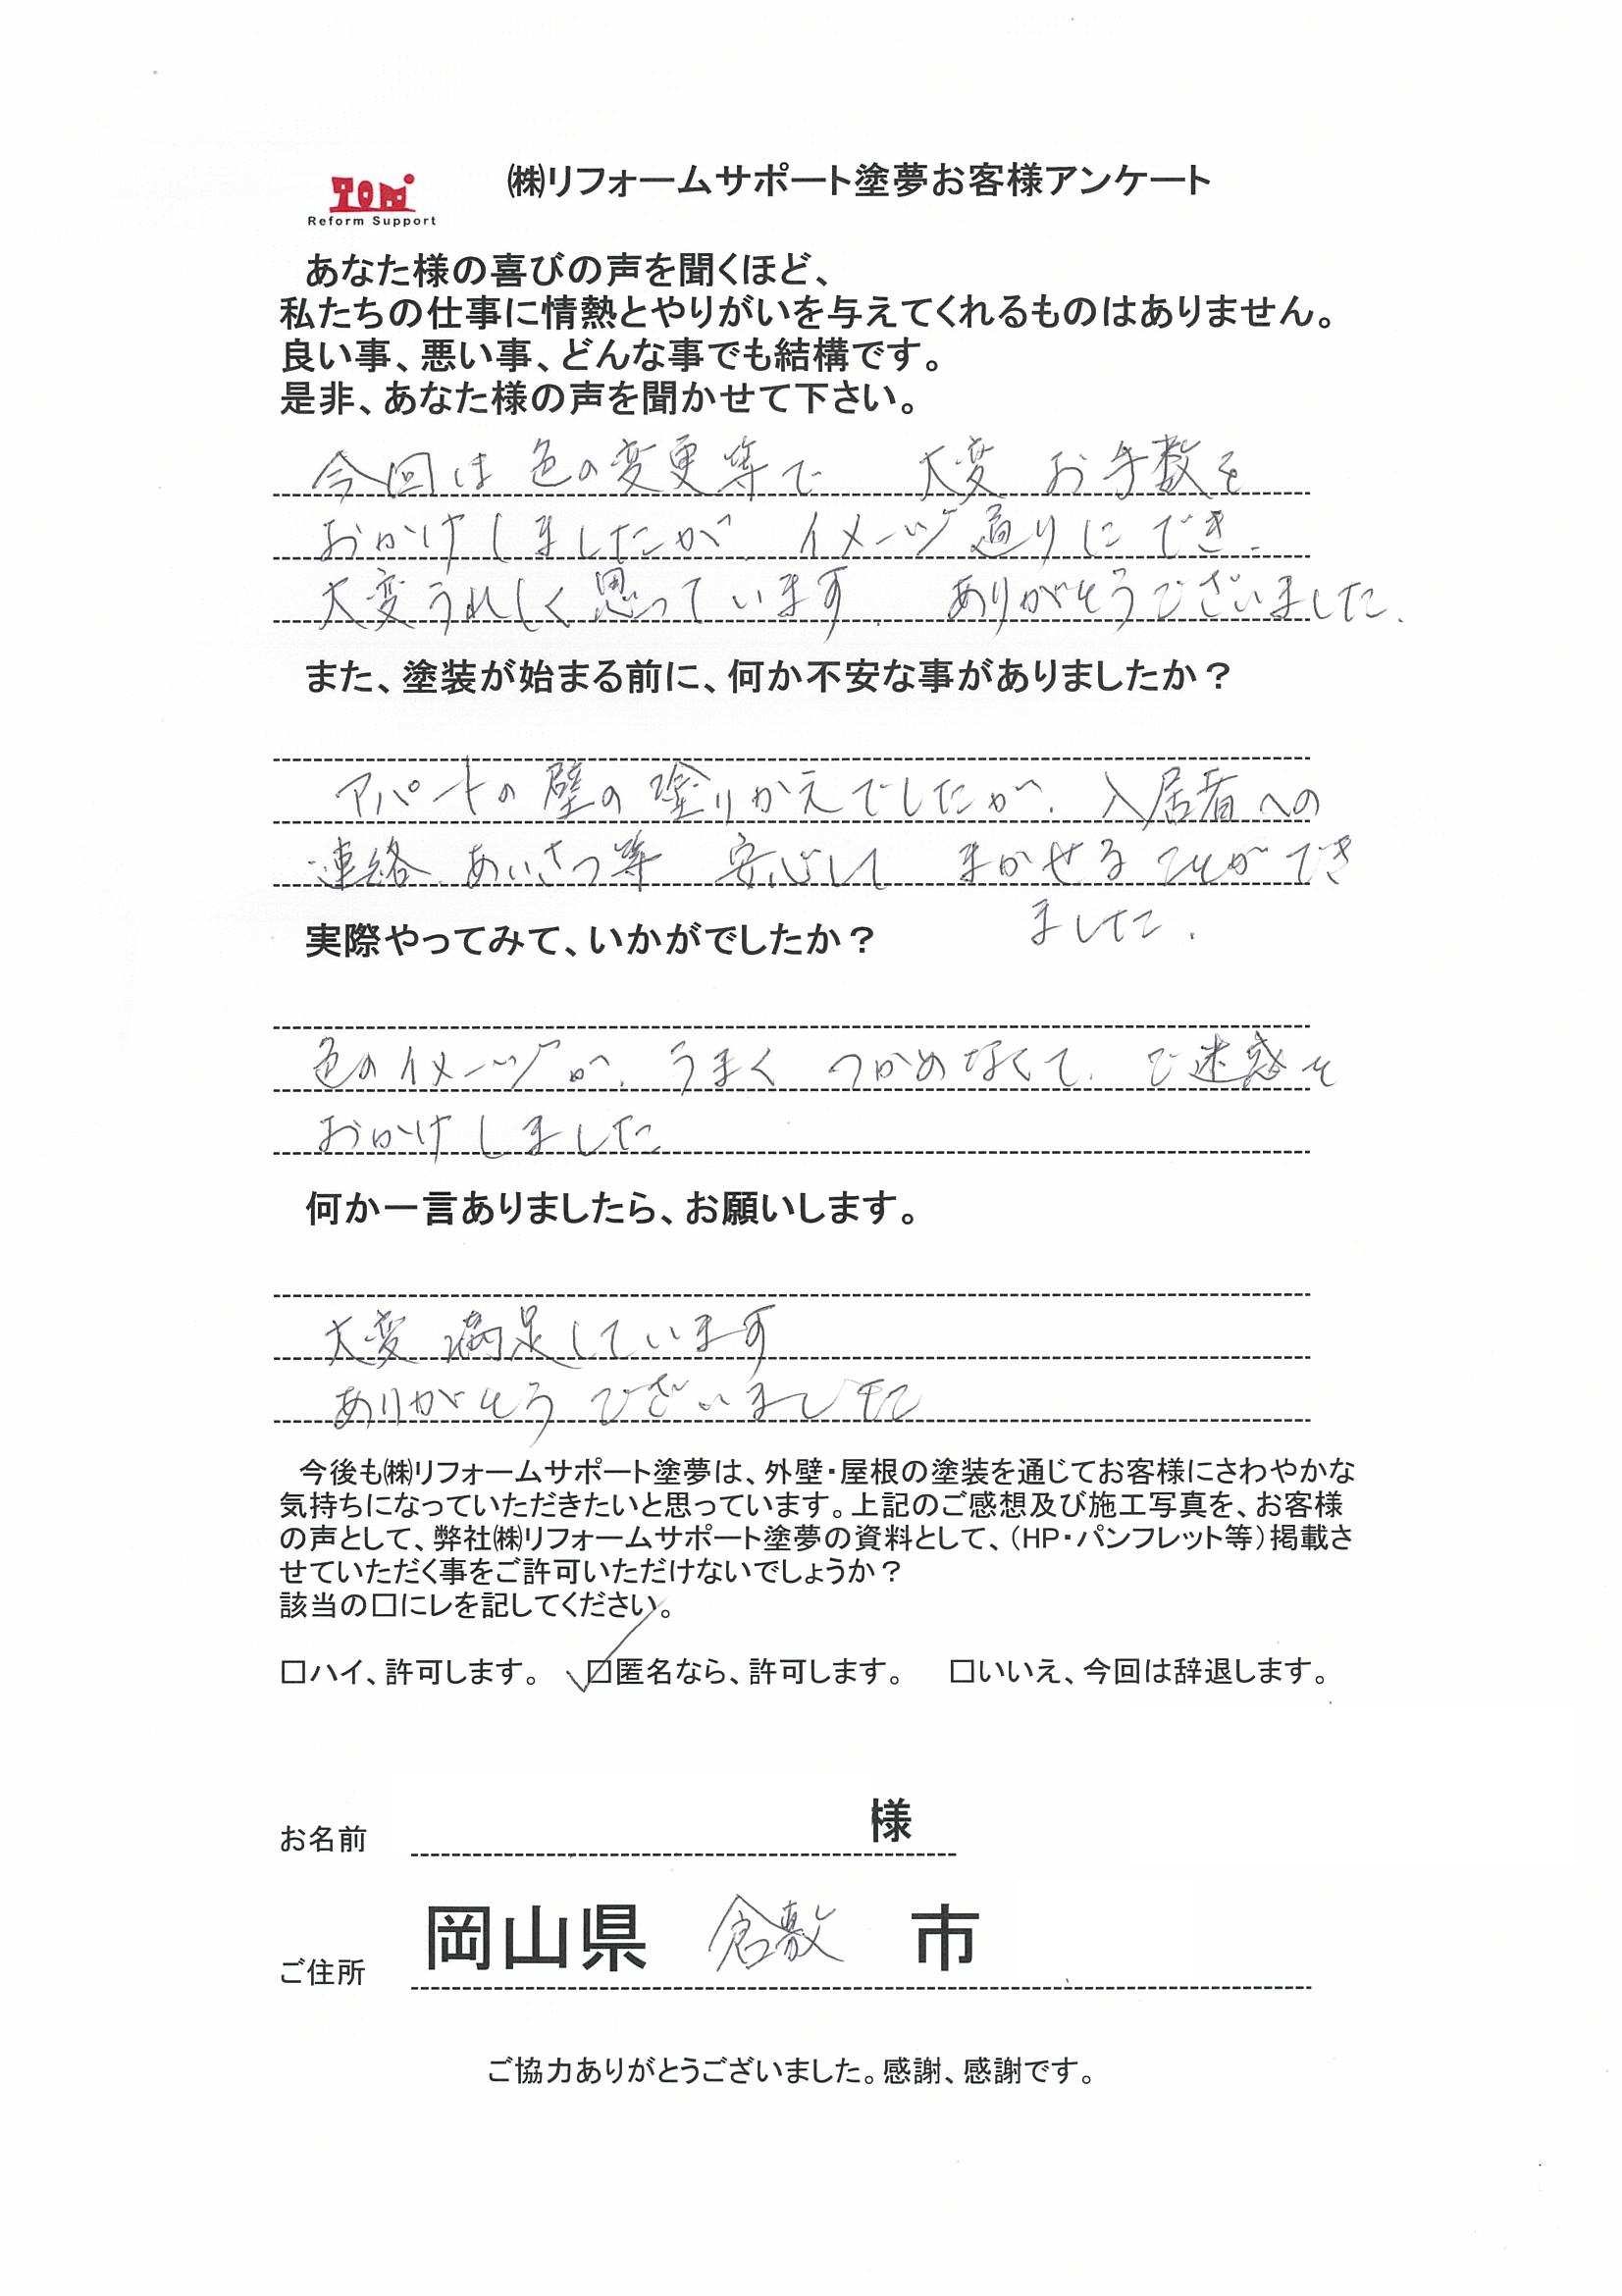 ㈱リフォームサポート塗夢お客様アンケート
TOM
Reform Support
あなた様の喜びの声を聞くほど、
私たちの仕事に情熱とやりがいを与えてくれるものはありません。
良い事、悪い事、どんな事でも結構です。
是非、あなた様の声を聞かせて下さい。
今回は色の変更等で 大変お手数を
おかけしましたが、イメージ通りにでき、
大変うれしく思っています。ありがとうございました。
また、塗装が始まる前に、何か不安な事がありましたか？
アパートの壁の塗りかえでしたが、入居者への
連絡、あいさつ等 安心して まかせることができ
ました。
実際やってみて、いかがでしたか？
色のイメージが、うまく つかめなくて、ご迷惑を
おかけしました
何か一言ありましたら、お願いします。
大変満足しています
ありがとうございました
今後も㈱リフォームサポート塗夢は、外壁・屋根の塗装を通じてお客様にさわやかな
気持ちになっていただきたいと思っています。上記のご感想及び施工写真を、お客様
の声として、弊社㈱リフォームサポート塗夢の資料として、（HP・パンフレット等）掲載さ
せていただく事をご許可いただけないでしょうか？
該当の□にレを記してください。
□ハイ、許可します。 ☑匿名なら、許可します。 □いいえ、今回は辞退します。
お名前 様
ご住所 岡山県 倉敷 市
ご協力ありがとうございました。感謝、感謝です。